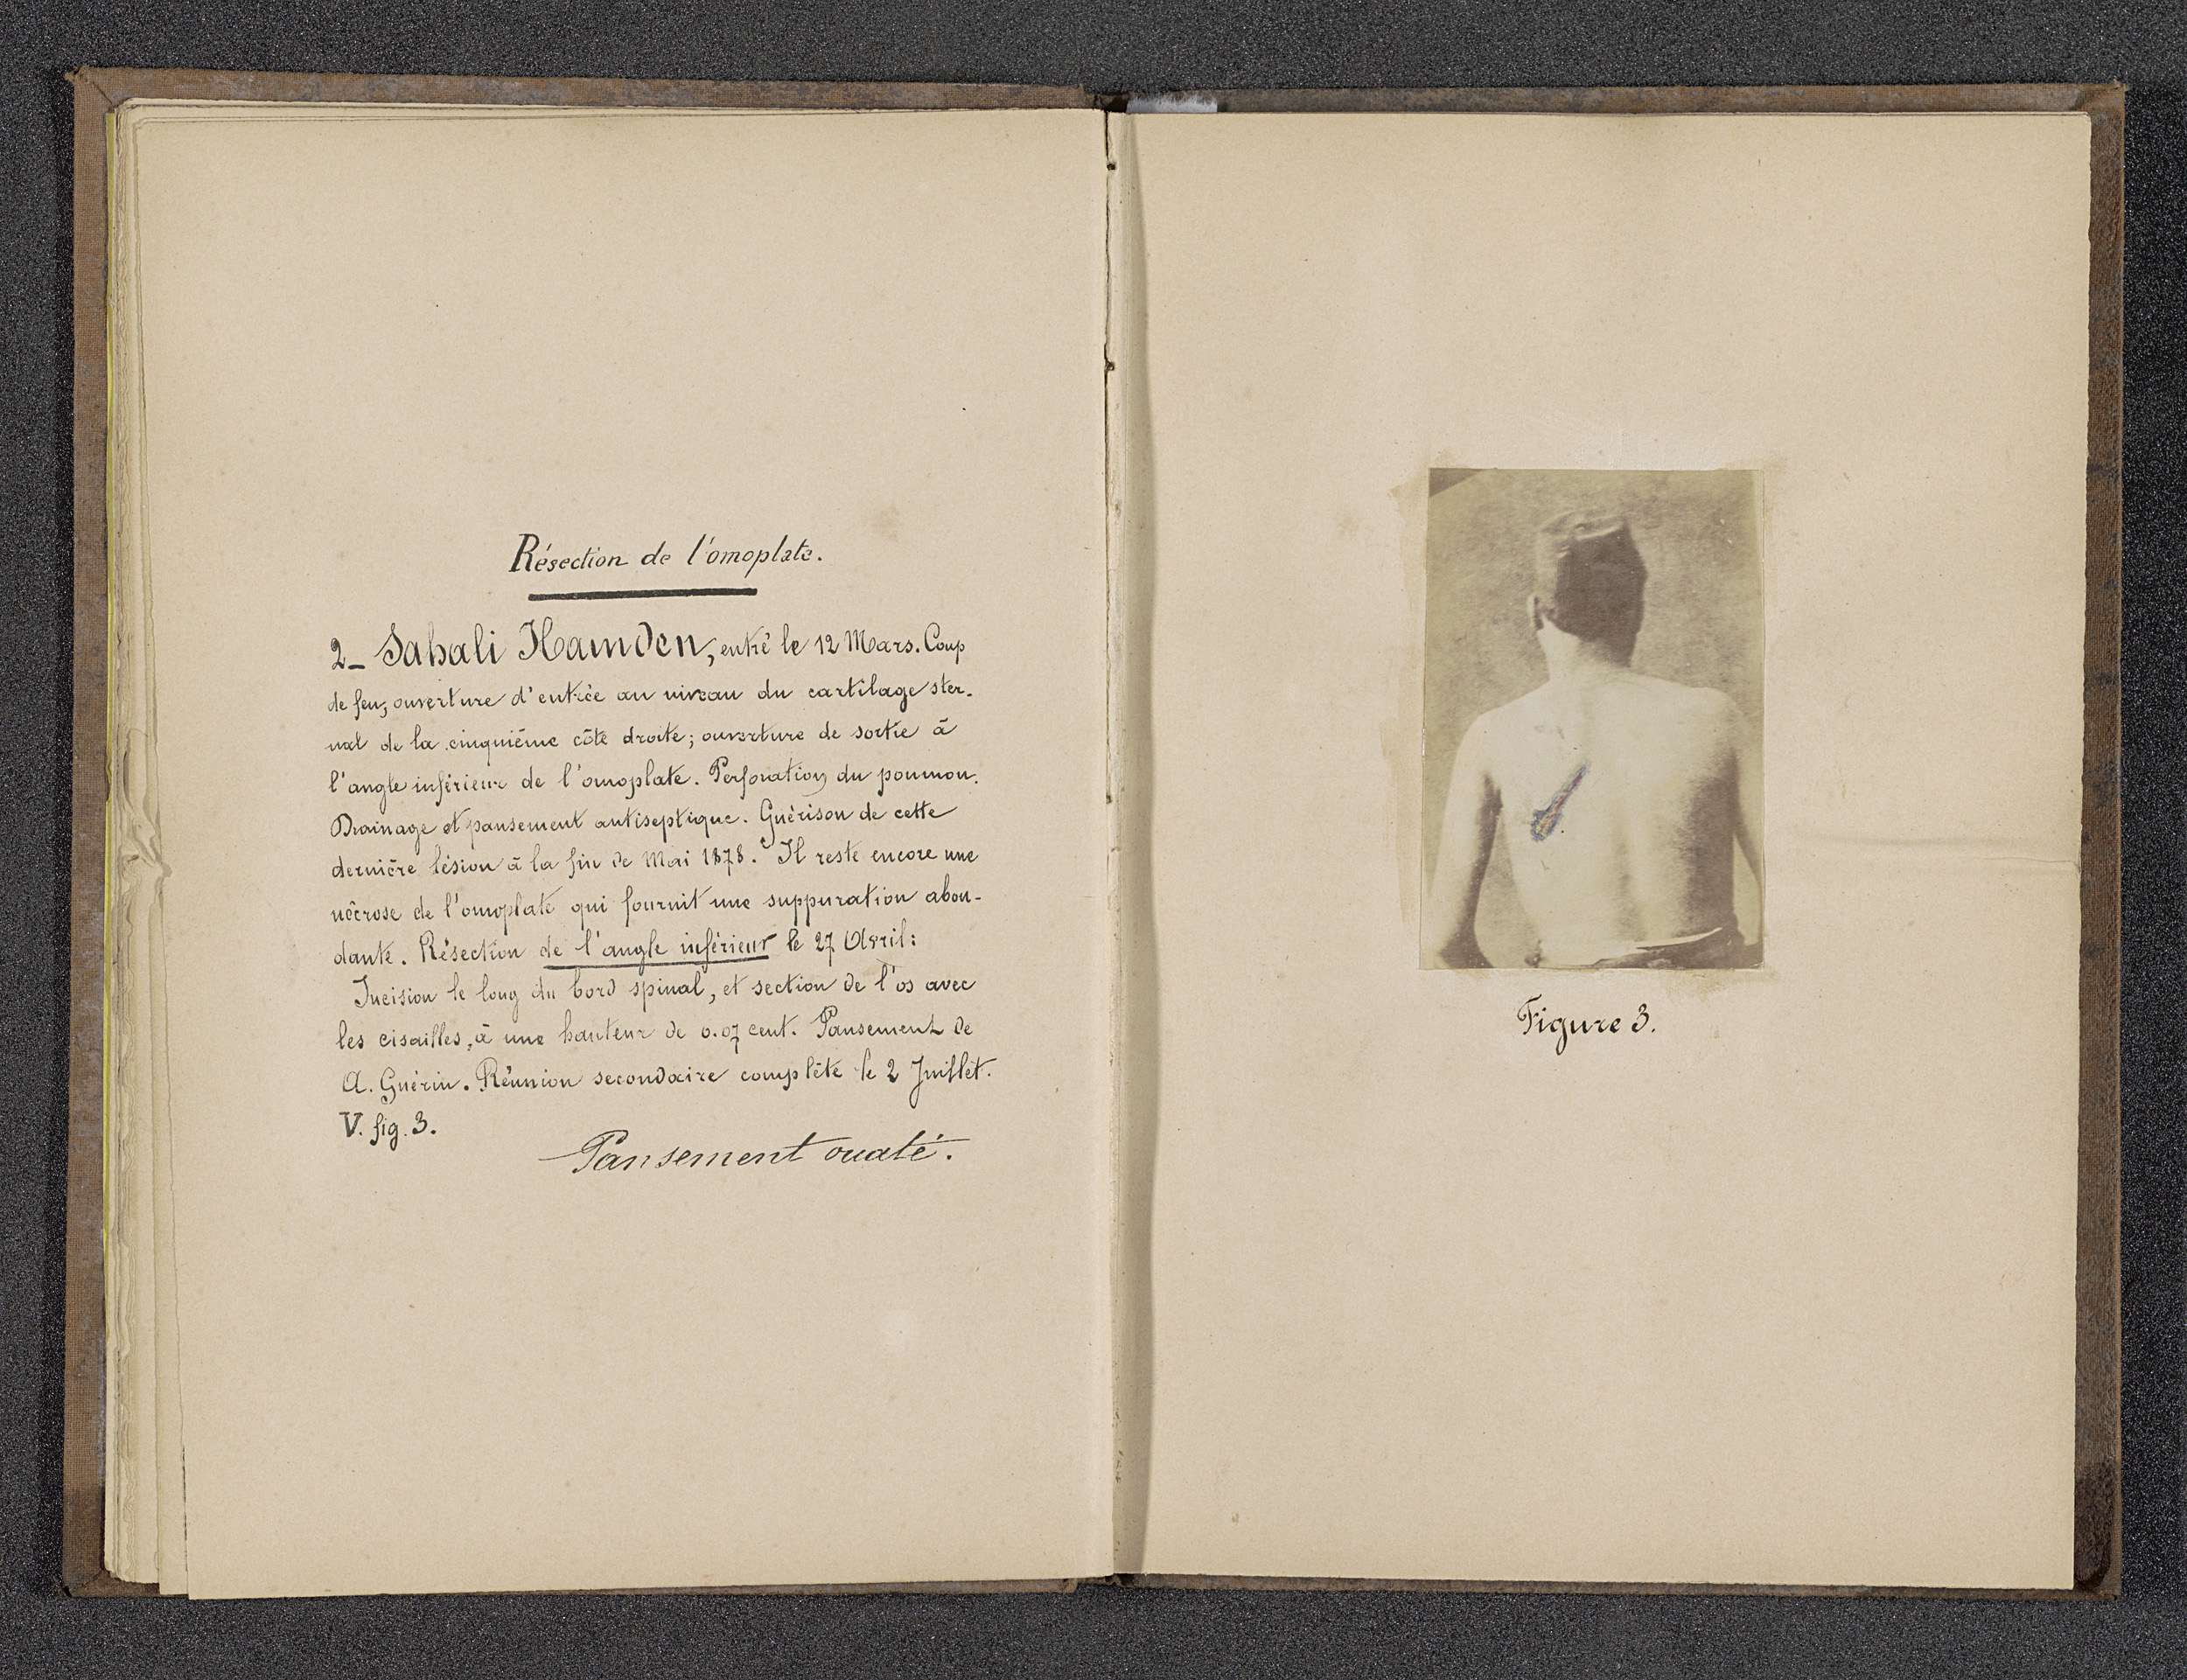 Résection de l'omoplate.
2_ Sahali Hamden, entré le 12 Mars. Coup
de feu, ouverture d'entrée au niveau du cartilage ster-
nal de la cinquième côte droite; ouverture de sortie à
l'angle inférieur de l'omoplate. Perforation du poumon.
Drainage et pansement antiseptique. Guérison de cette
dernière lésion à la fin de Mai 1878. Il reste encore une
nécrose de l'omoplate qui fournit une suppuration abon-
dante. Résection de l'angle inférieur le 27 Avril:
Incision le long du bord spinal, et section de l'os avec
les cisailles, à une hauteur de 0.07 cent. Pansement de
A. Guérin. Réunion secondaire complète le 2 Juillet.
V. fig. 3.
Pansement ouaté.
Figure 3.